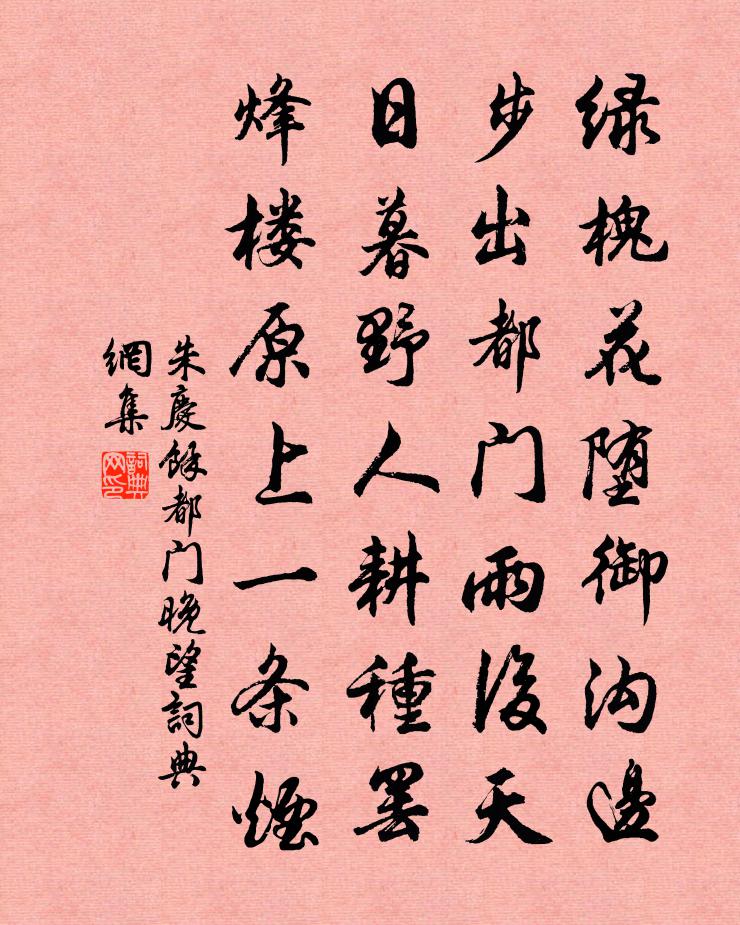 绿槐花堕御沟邊
步出都门雨後天
日暮野人耕種罢
烽楼原上一条煙
朱慶餘都门晚望詞典
網集
詞典
网印